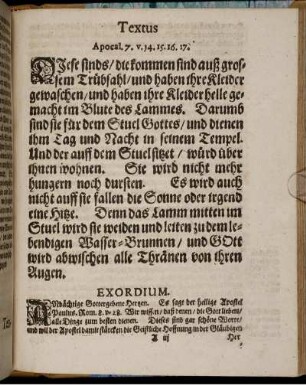 Textus
Apocal. 7. v. 14. 15. 16. 17.
DIese sinds / die kommen sind auß gros-
sem Trübsahl / und haben ihre Kleider
gewaschen / und haben ihre Kleider helle ge-
macht im Blute des Lammes. Darumb
sind sie für dem Stuel Gottes / und dienen
ihm Tag und Nacht in seinem Tempel.
Und der auff dem Stuel sitzet / würd über
ihnen wohnen. Sie wird nicht mehr
hungern noch dursten. Es wird auch
nicht auff sie fallen die Sonne oder irgend
eine Hitze. Denn das Lamm mitten im
Stuel wird sie weiden und leiten zu dem le-
bendigen Wasser-Brunnen / und GOtt
wird abwischen alle Thränen von ihren
Augen.
EXORDIUM.
ANdächtige Gottergebene Hertzen. Es sagt der heilige Apostel
Paulus. Rom. 8. v. 28. Wir wissen / daß denen / die Gott lieben /
alle Dinge zum besten dienen. Dieses sind gar schöne Worte /
und wil der Apostel damit stärcken die Geistliche Hoffnung in der Gläubigen
A ij Her